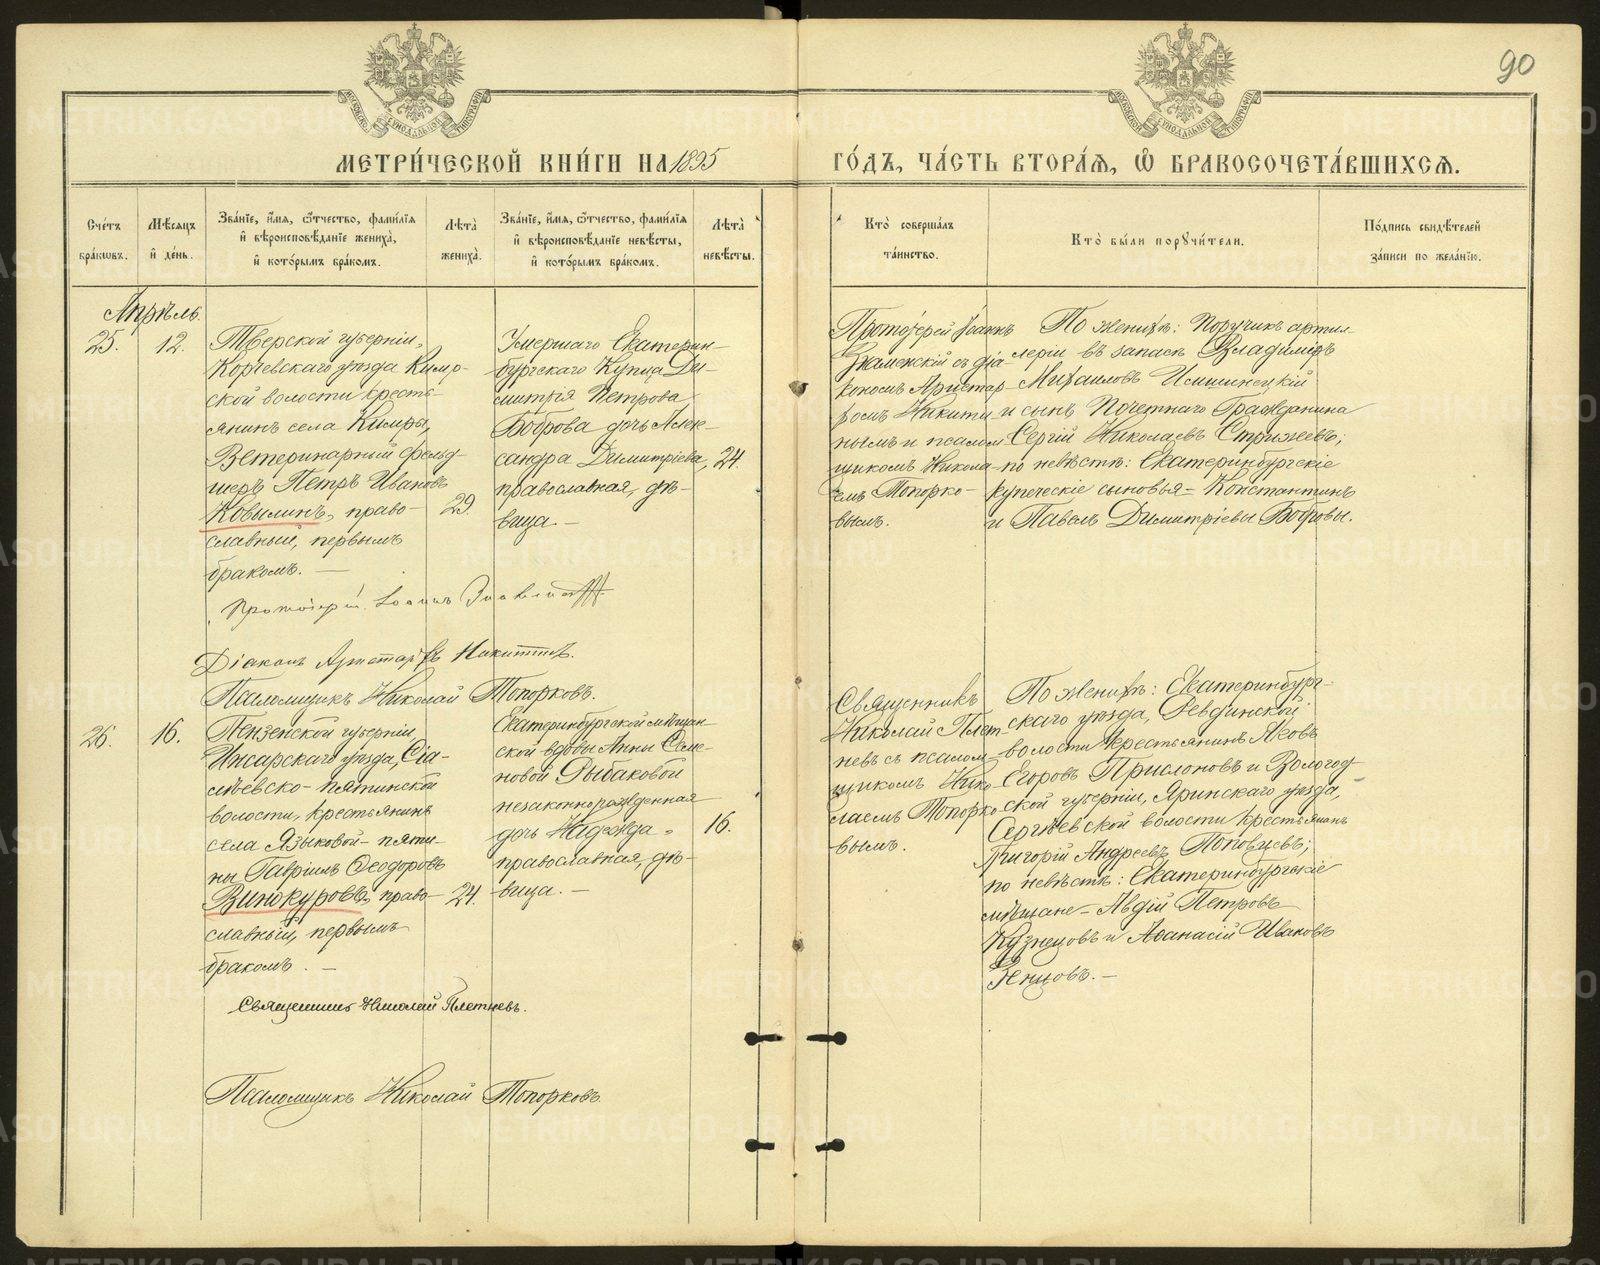 90
МЕТРИ́ЧЕСКОЙ КНИ́ГИ НА 1895 ГО́ДЪ, ЧА́СТЬ ВТОРА́Я, Ѿ БРАКОСОЧЕТА́ВШИХСЯ.
Сче́тъ бра́ковъ.
Мѣ́сяцъ и де́нь.
Зва́нїе, и́мя, ѻ́тчество, фами́лїя и вѣроисповѣ́данїе жениха̀, и кото́рымъ бра́комъ.
Лѣта̀ жениха̀.
Зва́нїе, и́мя, ѻ́тчество, фами́лїя и вѣроисповѣ́данїе невѣ́сты, и кото́рымъ бра́комъ.
Лѣта̀ невѣ́сты.
Кто̀ соверша́лъ та́инство.
Кто̀ бы́ли порꙋчи́тели.
По́дпись свидѣ́телей за́писи по жела́нїю.
Апрѣль.
25.
12.
Тверской губерніи,
Корчевскаго уѣзда Кимр-
ской волости кресть-
янинъ села Кимры,
Ветеринарный фельд-
шеръ Петръ Ивановъ
Ковылинъ, право-
славный, первымъ
бракомъ. —
29.
Умершаго Екатерин-
бургскаго Купца Ди-
митрія Петрова
Боброва дочь Алек-
сандра Димитріева,
православная, дѣ-
вица. —
24.
Протоіерей Іоаннъ
Знаменскій съ діа-
кономъ Аристар-
хомъ Никити-
нымъ и псалом-
щикомъ Никола-
емъ Топорко-
вымъ.
По женихѣ: Поручикъ артил-
леріи въ запасѣ Владиміръ
Михаиловъ
и сынъ Почетнаго Гражданина
Сергій Николаевъ Стрижевъ;
по невѣстѣ: Екатеринбургскіе
купеческіе сыновья – Константинъ
и Павелъ Димитріевы Бобровы.
Протоіерей Іоаннъ
Діаконъ Аристархъ Никитинъ.
Псаломщикъ Николай Топорковъ.
26.
16.
Пензенской губерніи
Инсарскаго уѣзда, Сіа-
лѣевско-пятинской
волости, крестьянинъ
села Языковой-пяти-
ны Гавріилъ Ѳеодоровъ
Винокуровъ, право-
славный, первымъ
бракомъ. —
24.
Екатеринбургской мѣщан-
ской вдовы Анны Семе-
новой Рыбаковой
незаконнорожденная
дочь Надежда,
православная, дѣ-
вица. —
16.
Священникъ
Николай Плет-
невъ съ псалом-
щикомъ Нико-
лаемъ Топорко-
вымъ.
По женихѣ: Екатеринбург-
скаго уѣзда, Ревдинской
волости крестьянинъ Яковъ
Егоровъ Прислоновъ и Вологод-
ской губерніи, Яринскаго уѣзда,
Сергіевской волости крестьянинъ
Григорій Андреевъ Поповцевъ;
по невѣстѣ: Екатеринбургскіе
мѣщане – Авдій Петровъ
Кузнецовъ и Аѳанасій Ивановъ
Ренцовъ. —
Священникъ Николай Плетневъ.
Псаломщикъ Николай Топорковъ.
METRIKI.GASO-URAL.RU